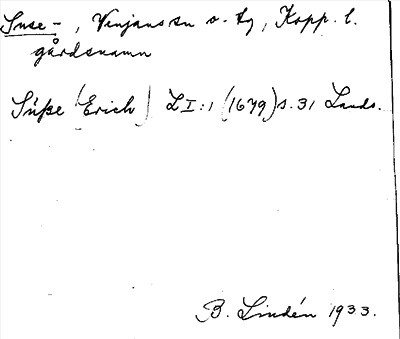 Suse-, Venjans sn o. tg, Kopp. l.
gårdsnamn
Süße (Erich) L I:1 (1679) s. 31 Lands.
B. Lindén 1933.